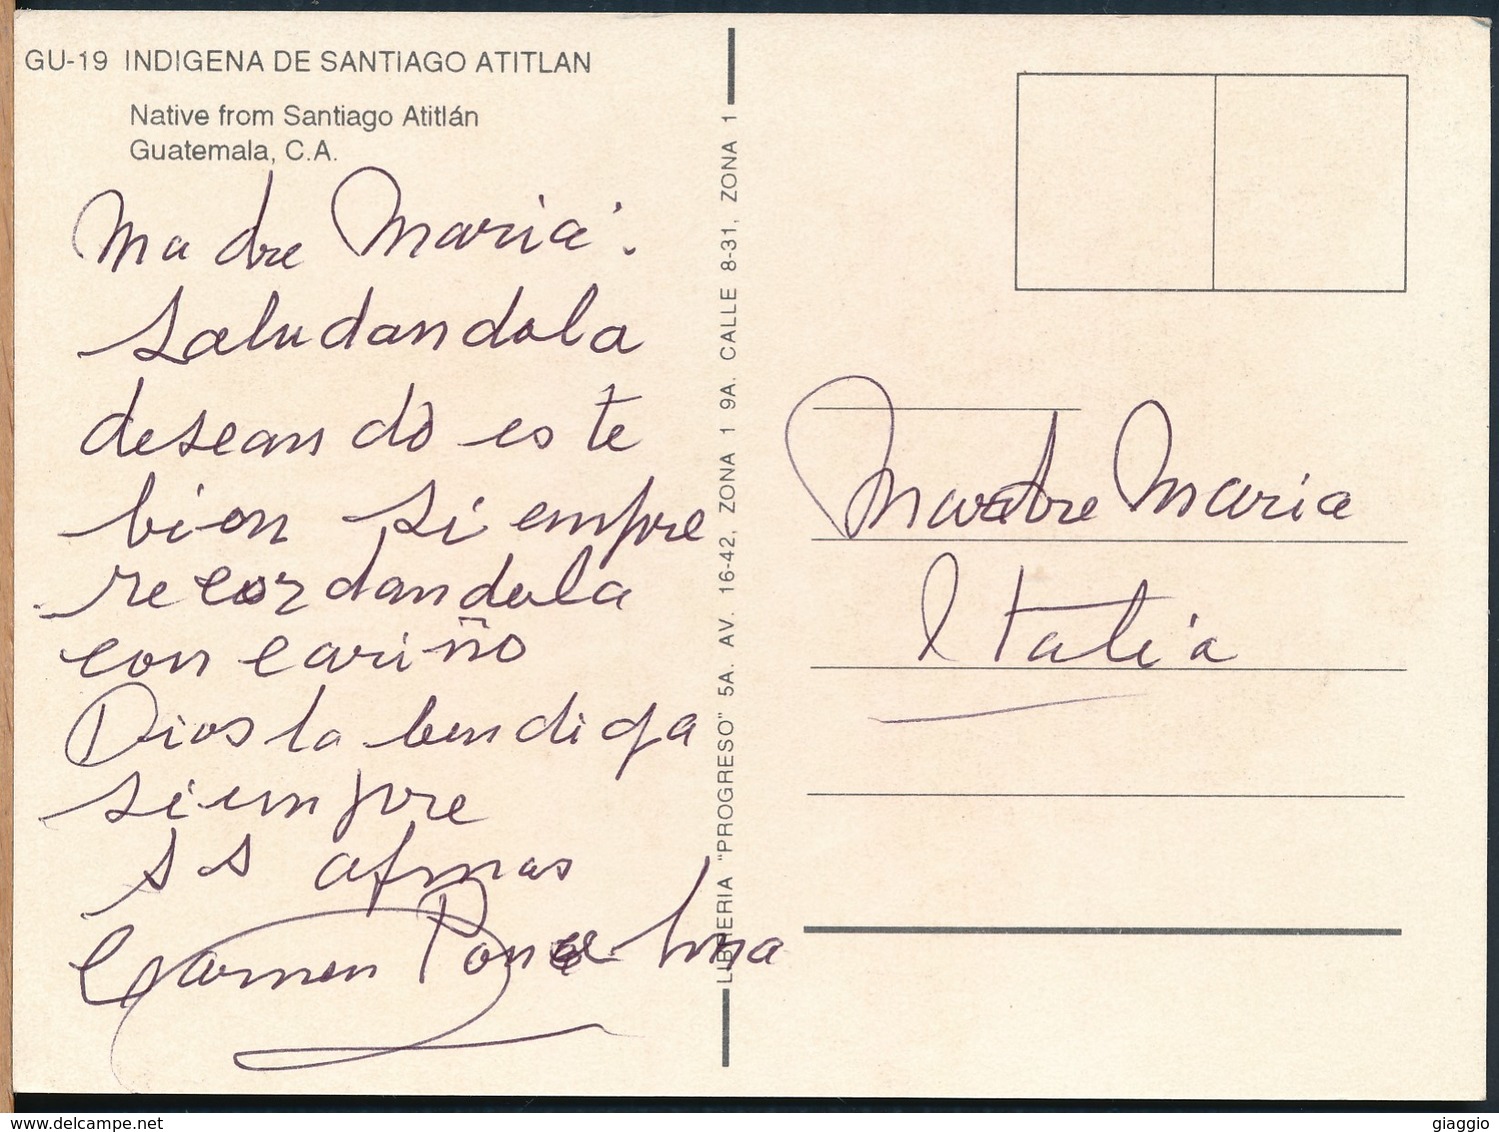 GU-19 INDIGENA DE SANTIAGO ATITLAN
Native from Santiago Atitlán
Guatemala, C.A.
Madre Maria:
Saludandola
deseando este
bien siempre
recordandola
con cariño
Dios la bendiga
siempre
SS afmas
Carmen
LIBRERIA "PROGRESO" 5A. AV. 16-42, ZONA 1 9A. CALLE 8-31, ZONA 1
Madre Maria
Italia
delcampe.net
giaggio